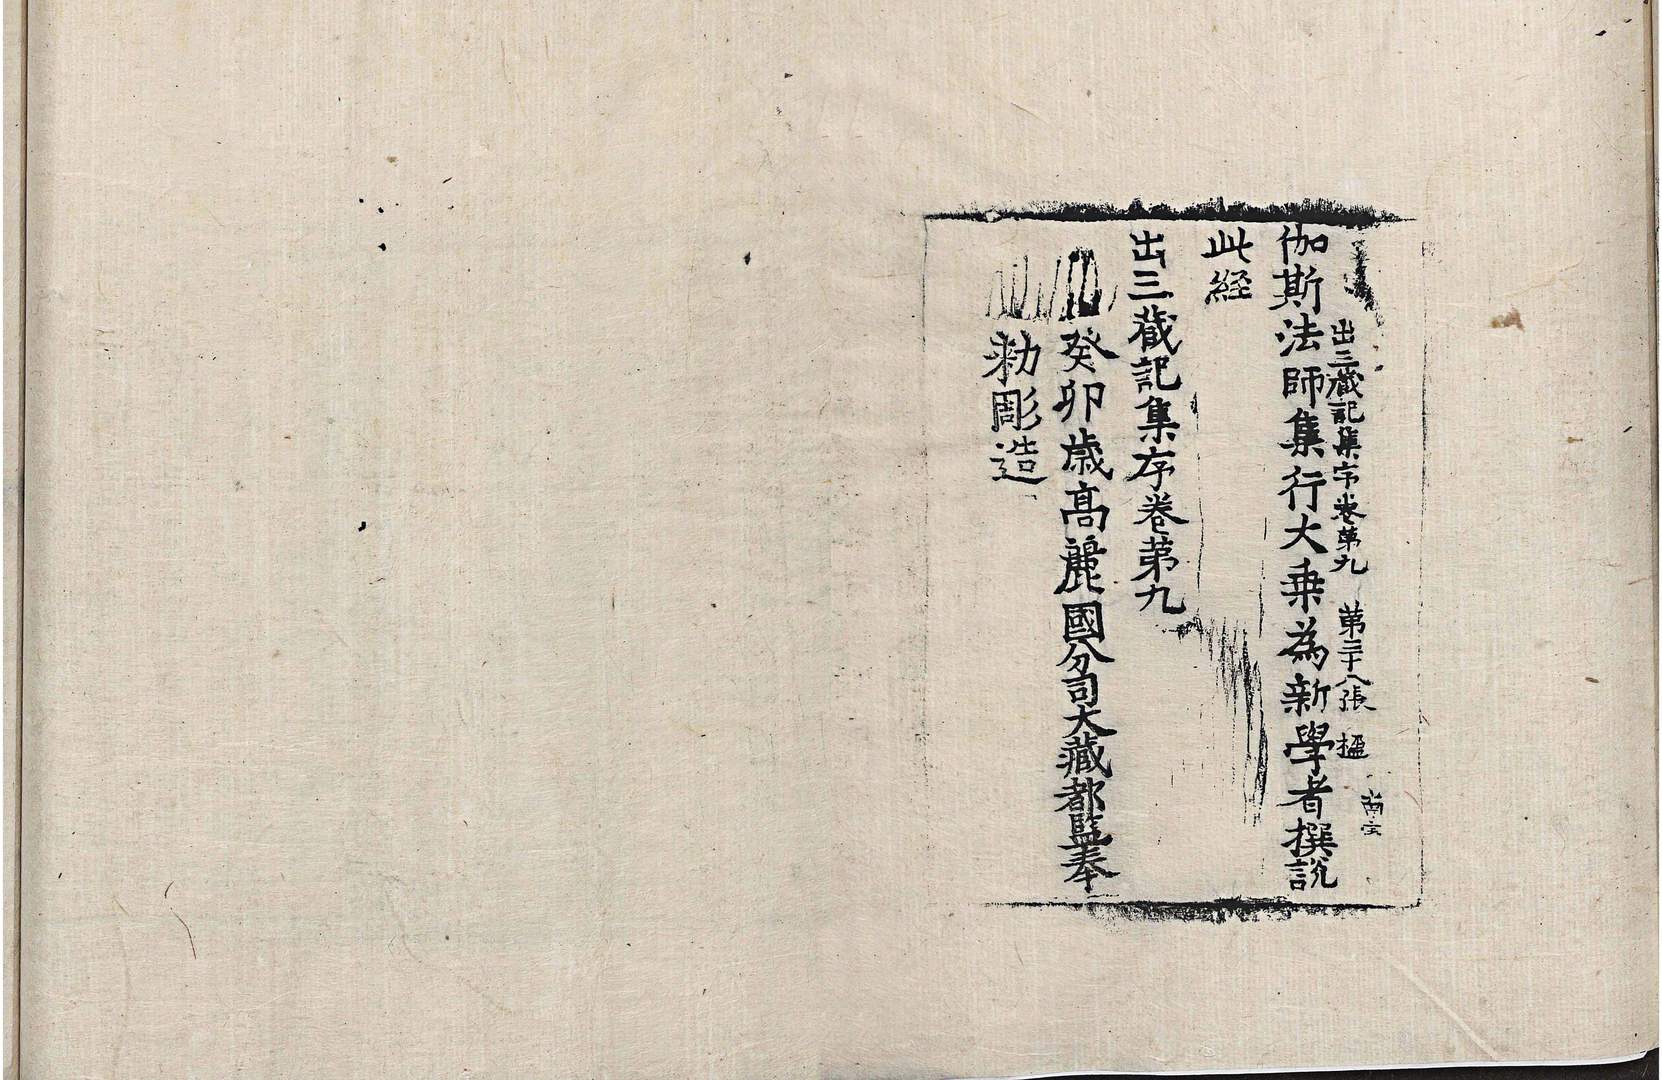 出三藏記集序卷第九 第二十八張 楹
伽斯法師集行大乗為新學者撰說
此経
出三藏記集序卷第九
癸卯歳髙麗國分司大藏都監奉
勑彫造